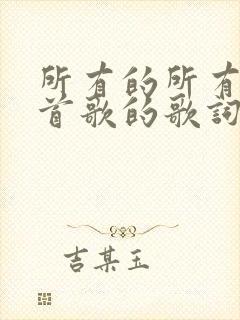 所有的所有
首歌的歌词
吉某玉